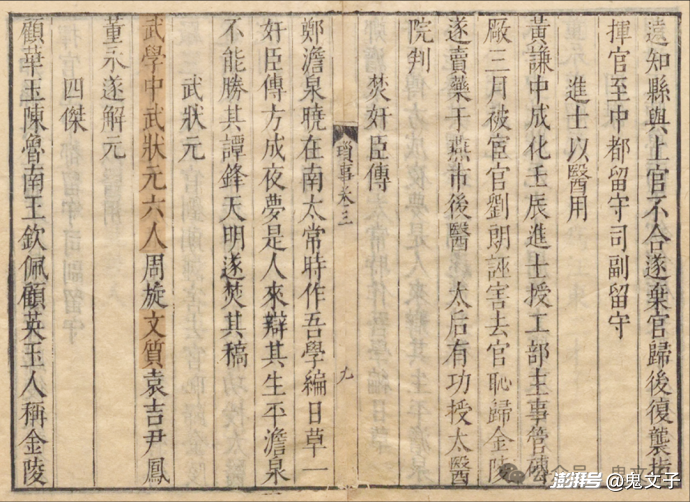 遠知縣與上官不合遂棄官歸後復襲指
揮官至中都留守司副留守
進士以醫用
黃謙中成化壬辰進士授工部主事管磚
廠三月被宦官劉朗誣害去官恥歸金陵
遂賣藥于燕市後醫 太后有功授太醫
院判
焚奸臣傳
瑣事卷三 九
鄭澹泉曉在南太常時作吾學編日草一
奸臣傳方成夜夢是人來辯其生平澹泉
不能勝其譚鋒天明遂焚其稿
武狀元
武學中武狀元六人周旋文質袁吉尹鳳
董永遂解元
四傑
顧華玉陳魯南王欽佩顧英玉人稱金陵
澎湃号@鬼文子